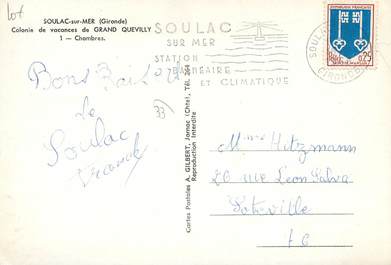 lot
SOULAC-sur-MER (Gironde)
Colonie de vacances de GRAND QUEVILLY
1 - Chambres.
SOULAC
SUR MER
STATION
BALNÉAIRE
ET CLIMATIQUE
SOULAC
GIRONDE
REPUBLIQUE FRANÇAISE
0,25
MONT-DE-MARSAN
Bons Baisers
de
Soulac
33
Cartes Postales A. GILBERT, Jarnac (Chte), Tél. 264
Reproduction Interdite
Mme Hitzmann
20 rue Léon Salva
Sotteville